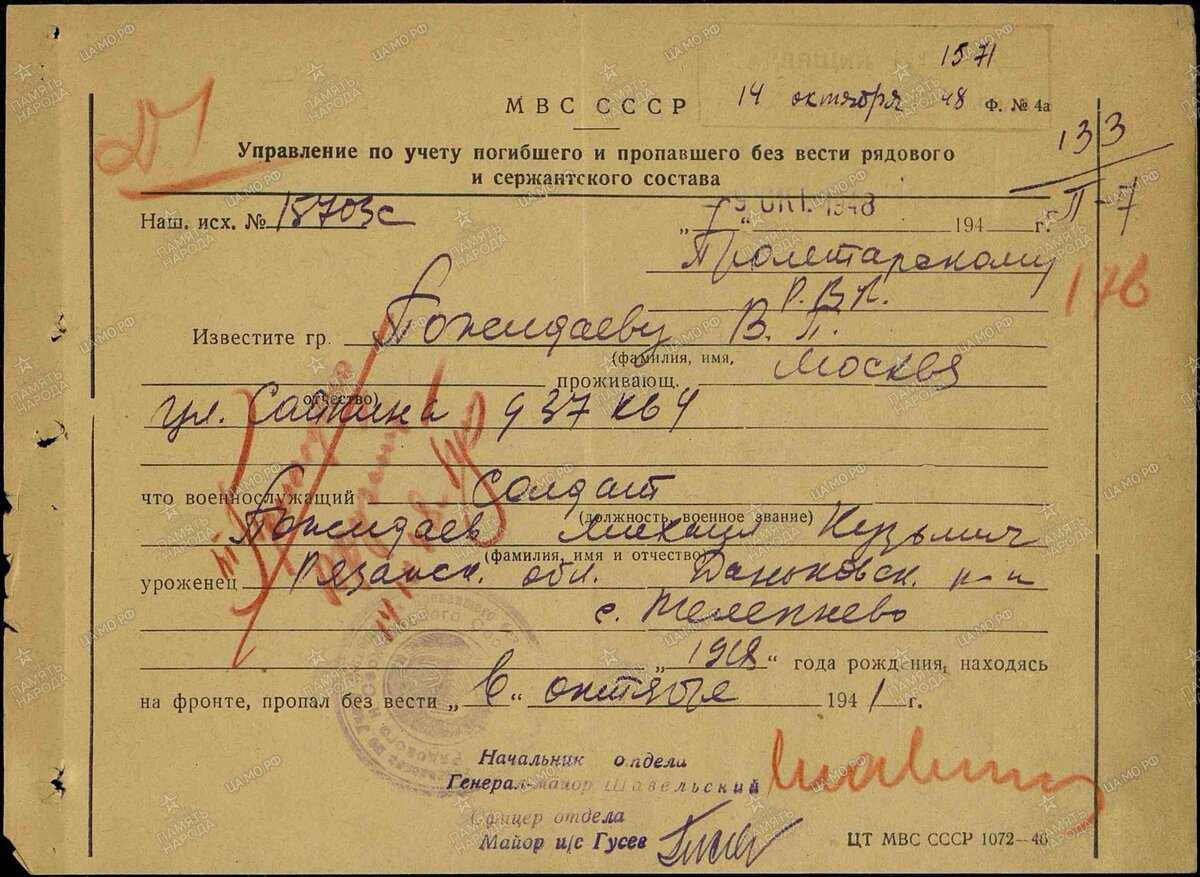 1571
14 октября 48
МВС СССР
Ф. № 4а
133
П-7
Управление по учету погибшего и пропавшего без вести рядового
и сержантского состава
Наш. исх. № 18703с
„7“ 194 г.
9 ОКТ. 1948
Пролетарскому
Р.В.К.
178
Известите гр. Пожидаеву В. П.
(фамилия, имя,
отчество)
проживающ. Москва
ул. Сайкина д 37 кв 4
что военнослужащий Солдат
(должность, военное звание)
Пожидаев Михаил Кузьмич
(фамилия, имя и отчество)
уроженец Рязанск. обл. Даньковск. р-н
с. Телепнево
„1918“ года рождения, находясь
на фронте, пропал без вести „в“ октябре 1941 г.
Начальник отдела
Генерал-майор Шавельский
Офицер отдела
Майор и/с Гусев
ЦТ МВС СССР 1072—46
ПАМЯТЬ НАРОДА
ЦАМО.РФ